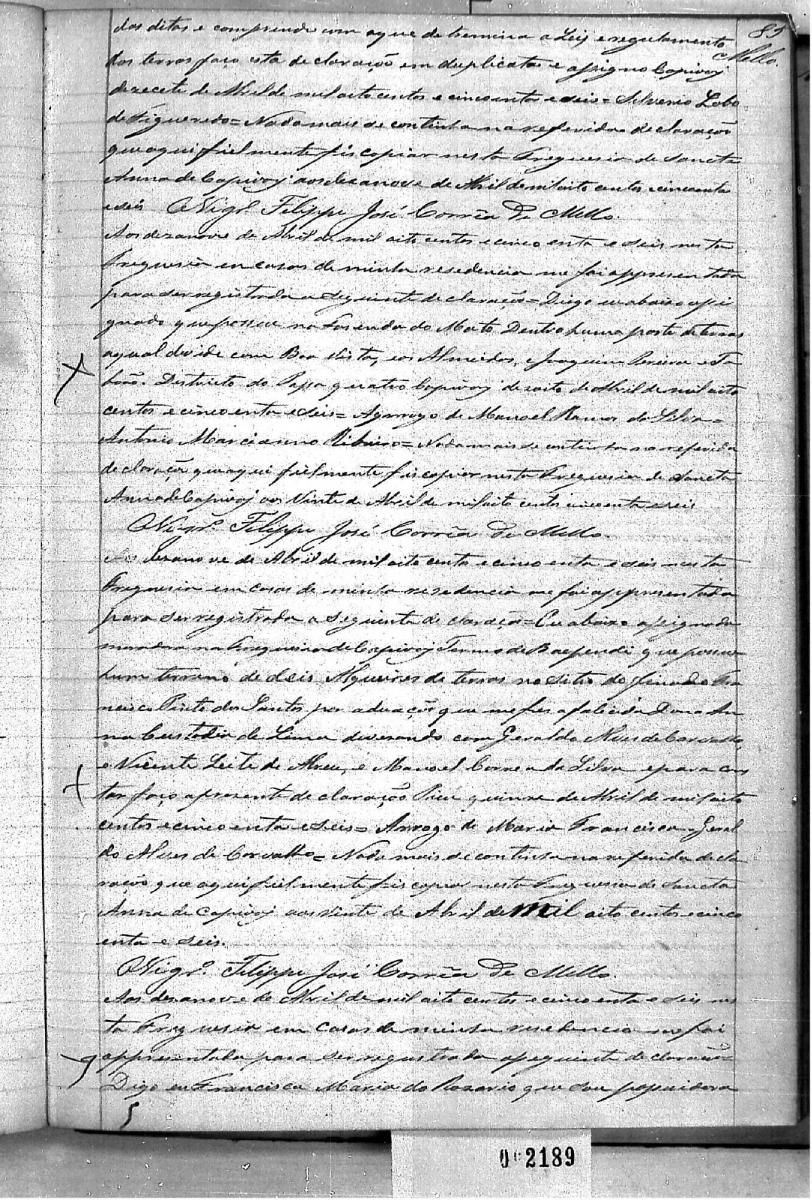 89
Mello.
dos ditos e comprindo com aque de termina a Leij e regulamento
das terras faço esta de claração em duplicata e assigno Capivarj
dezecete de Abril de mil oito centos e cincoenta e seis = Silverio Lobo
de Figueredo = Nada mais se continha na referida de claração
que aqui fielmente fis copiar nesta Freguesia de Sancta
Anna de Capivarj aos desanove de Abril de mil oito centos cincoenta
e seis O Vigrº. Filippe José Corrêa De Mello.
Aos desanove de Abril de mil oito centos e cinco enta e seis nesta
Freguesia em casas de minha residencia me foi appresentada
para ser registrada a seguinte de claração = Diogo eu abaixo assi
gnado que possuo na Fasenda do Mato Dentro huma parte de terras
a qual devide com Boa Vista, eos Almeidas, e Joaquim Pereira e Ta
boão. Districto do Passa quatro Capivarj desoito de Abril de mil oito
centos e cinco enta e seis = Aharrogo de Manoel Ramos da Silva =
Antonio Marcianno Ribeiro = Nada mais se continha na referida
de claração que aqui fielmente fis copiar nesta Freguesia de Sancta
Anna de Capivarj aos Vinte de Abril de mil oito centos cincoenta e seis
O Vigrº. Filippe José Corrêa De Mello.
Aos desanove de Abril de mil oito cento e cinco enta e seis nesta
Freguesia em casas de minha resedencia me foi appresentada
para ser registrada a seguinte de claração = Eu abaixo assignada
moradora na Freguesia de Capivarj Termo de Baependi que possuo
hum terreno de seis Alqueires de terras no Sitio do finado Fran
cisco Pinto dos Santos por a duação que me fes a falicida Dona An
na Custodia de Lima devesando com Geraldo Alves de Carvalho
e Vicente Leite de Abreu, e Manoel Correa da Silva e para cons
tar faço a presente de claração Picu quinze de Abril de mil oito
centos e cinco enta e seis = Arrogo de Maria Francisca = Geral
do Alves de Carvalho = Nada mais se continha na referida de cla
ração que aqui fielmente fis copiar nesta Freguesia de Sancta
Anna de Capivarj aos Vinte de Abril de mil oito centos e cinco
enta e seis.
O Vigrº. Filippe José Corrêa De Mello
Aos desanove de Abril de mil oito centos e cinco enta e seis nes
ta Freguesia em casas de minha residencia me foi
appresentada para ser registrada a seguinte de claração =
Digo eu Francisca Maria do Rosario que sou possuidora
0c 2189